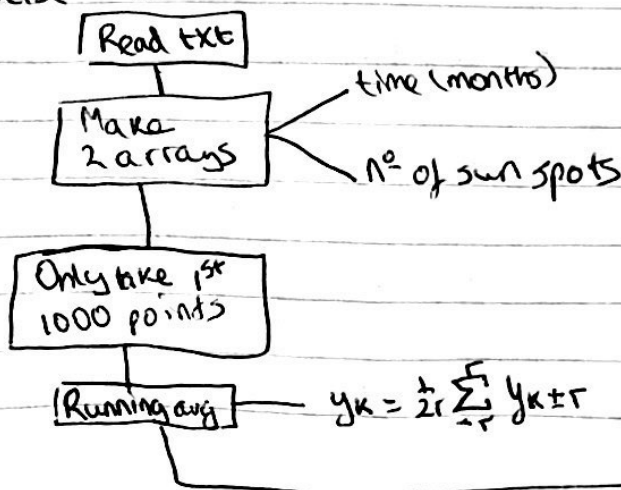 Read txt
Make
2 arrays
time (months)
nº of sun spots
Only take 1st
1000 points
Running avg
yk = 1/2r Σ yk±r